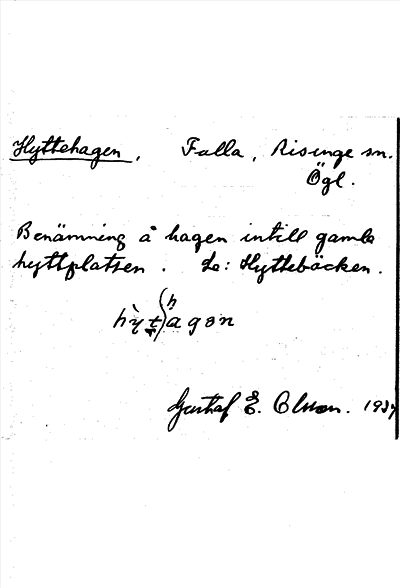 Hyttehagen. Falla, Risinge sn.
Ögl.
Benämning å hagen intill gamla
hyttplatsen. Se: Hyttebäcken.
Gustaf E. Olsson. 1937